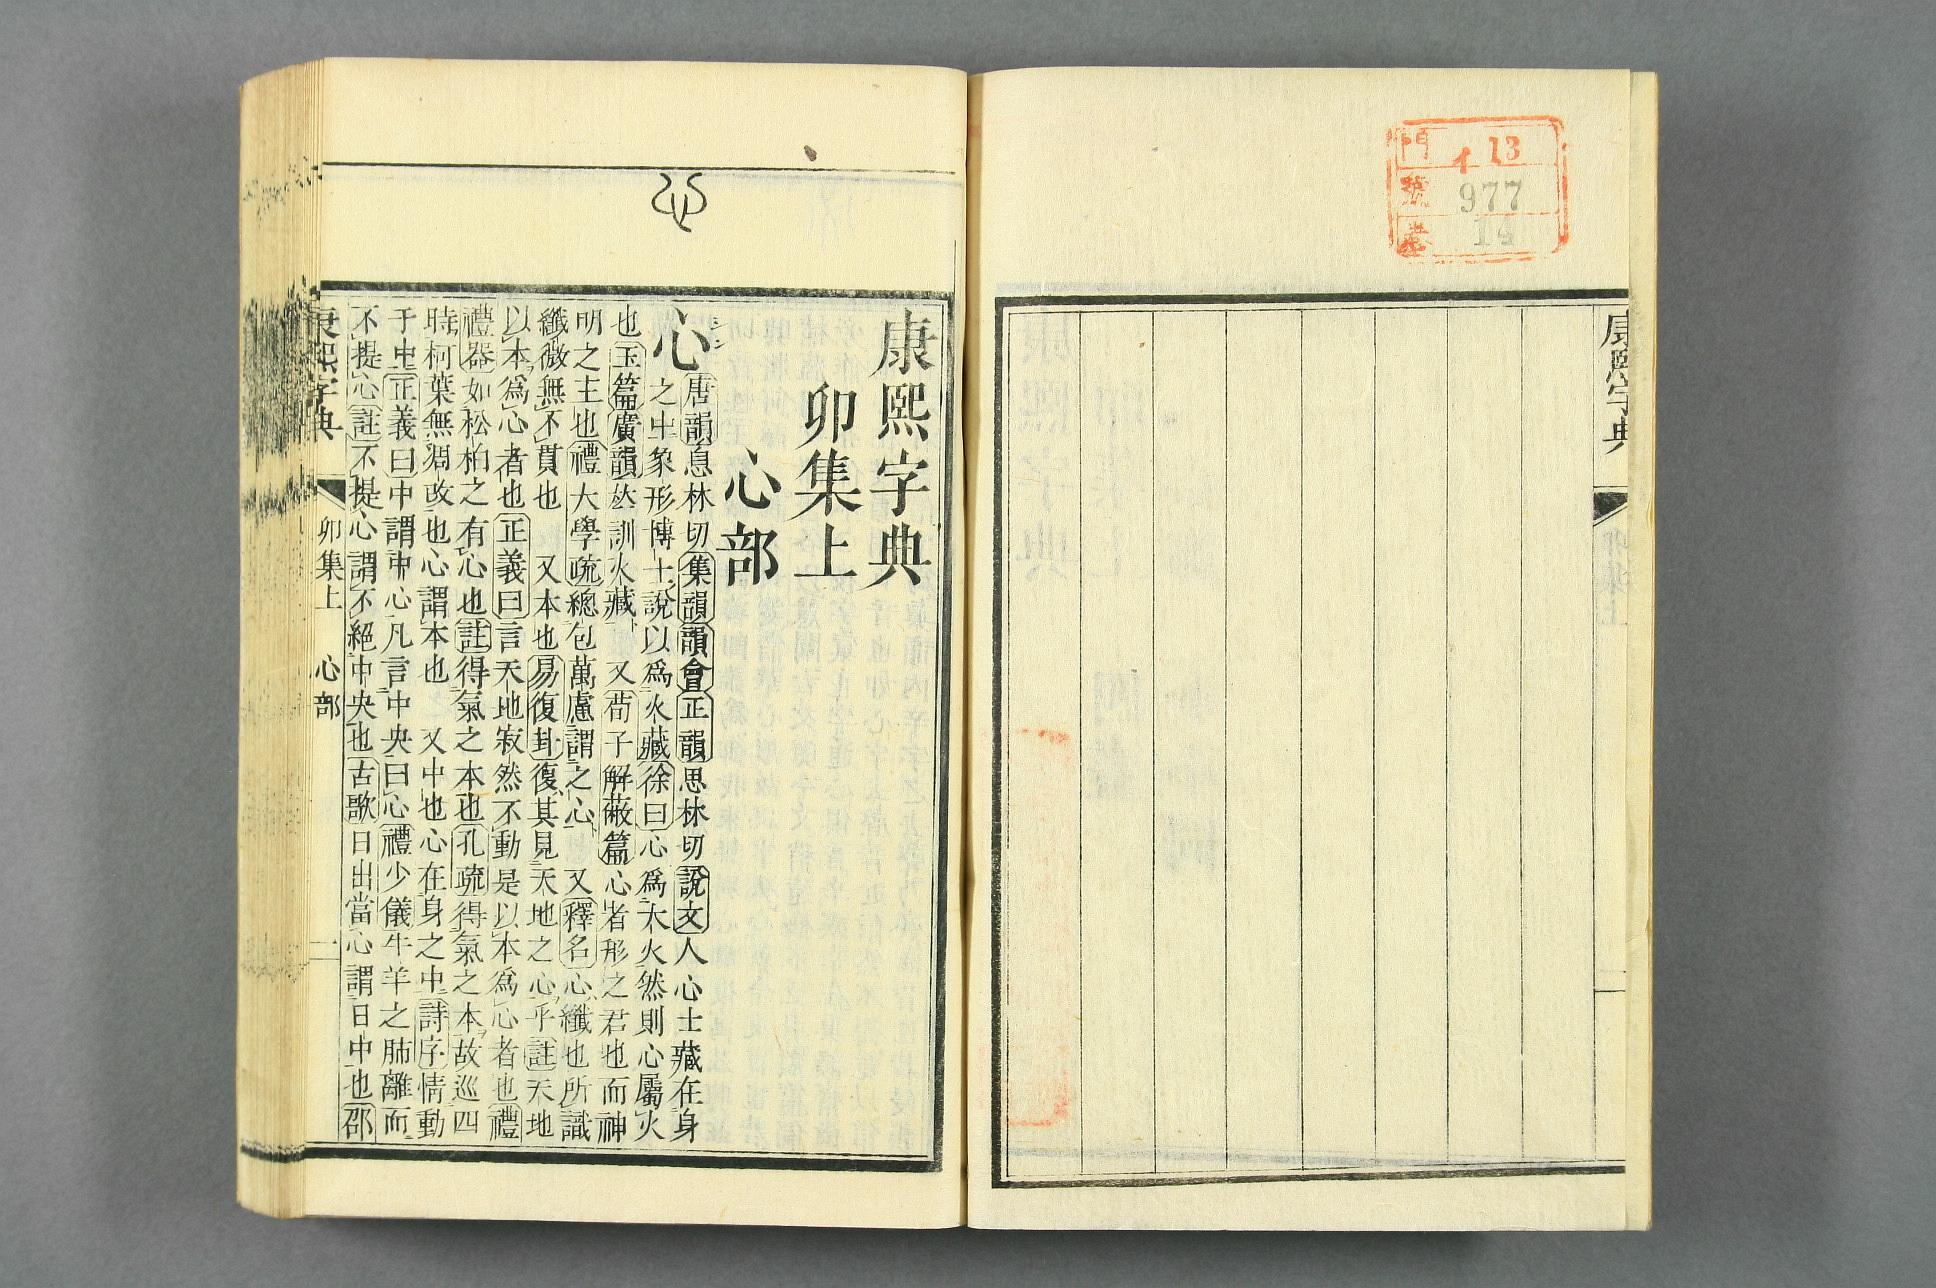 門 イ13
號 977
卷 14
康熙字典
康熙字典
卯集上
心部
心
シン
唐韻息林切集韻韻會正韻思林切說文人心土藏在身
之中象形博士說以爲火藏徐曰心爲大火然則心屬火
也玉篇廣韻𠀤訓火藏 又荀子解蔽篇心者形之君也而神
明之主也禮大學疏總包萬慮謂之心 又釋名心纖也所識
纖微無不貫也 又本也易復卦復其見天地之心乎註天地
以本爲心者也正義曰言天地寂然不動是以本爲心者也禮
禮器如松柏之有心也註得氣之本也孔疏得氣之本故巡四
時柯葉無凋改也心謂本也 又中也心在身之中詩序情動
于中正義曰中謂中心凡言中央曰心禮少儀牛羊之肺離而
不提心註不提心謂不絕中央也古歌日出當心謂日中也邵
康熙字典 卯集上 心部 一